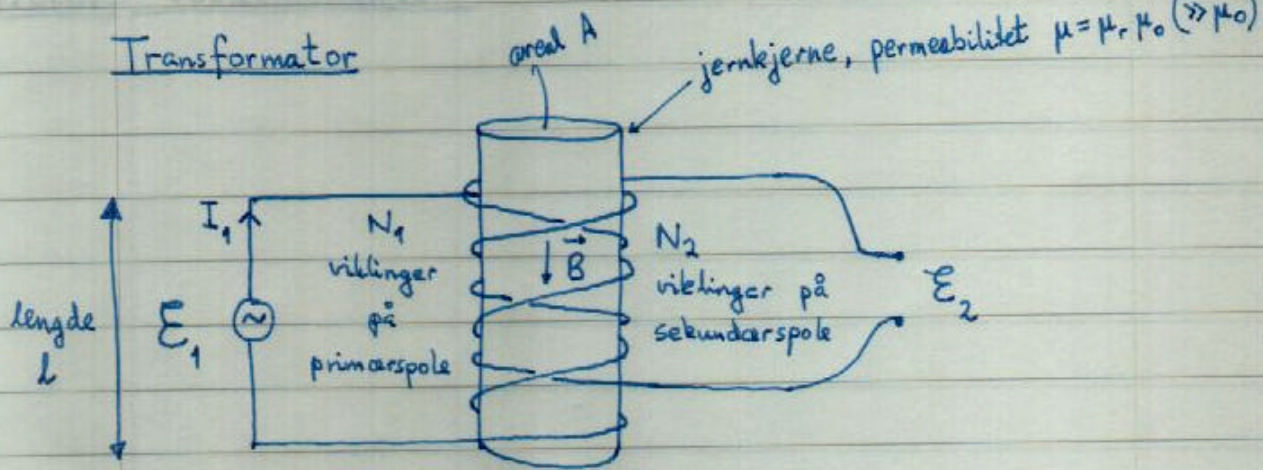 Transformator
areal A
jernkjerne, permeabilitet μ = μᵣ μ₀ (≫ μ₀)
I₁
N₁
viklinger
på
primærspole
B⃗
N₂
viklinger på
sekundærspole
lengde
l
ℰ₁
~
ℰ₂